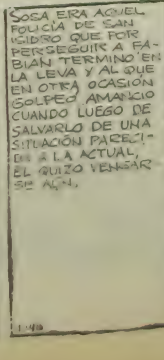 SOSA ERA AQUEL
POLICÍA DE SAN
ISIDRO QUE POR
PERSEGUIR A FA-
BIAN TERMINO EN
LA LEVA Y AL QUE
EN OTRA OCASIÓN
GOLPEÓ AMANCIO
CUANDO LUEGO DE
SALVARLO DE UNA
SITUACIÓN PARECI-
DA A LA ACTUAL,
EL QUIZO VENGAR
SE AÚN.